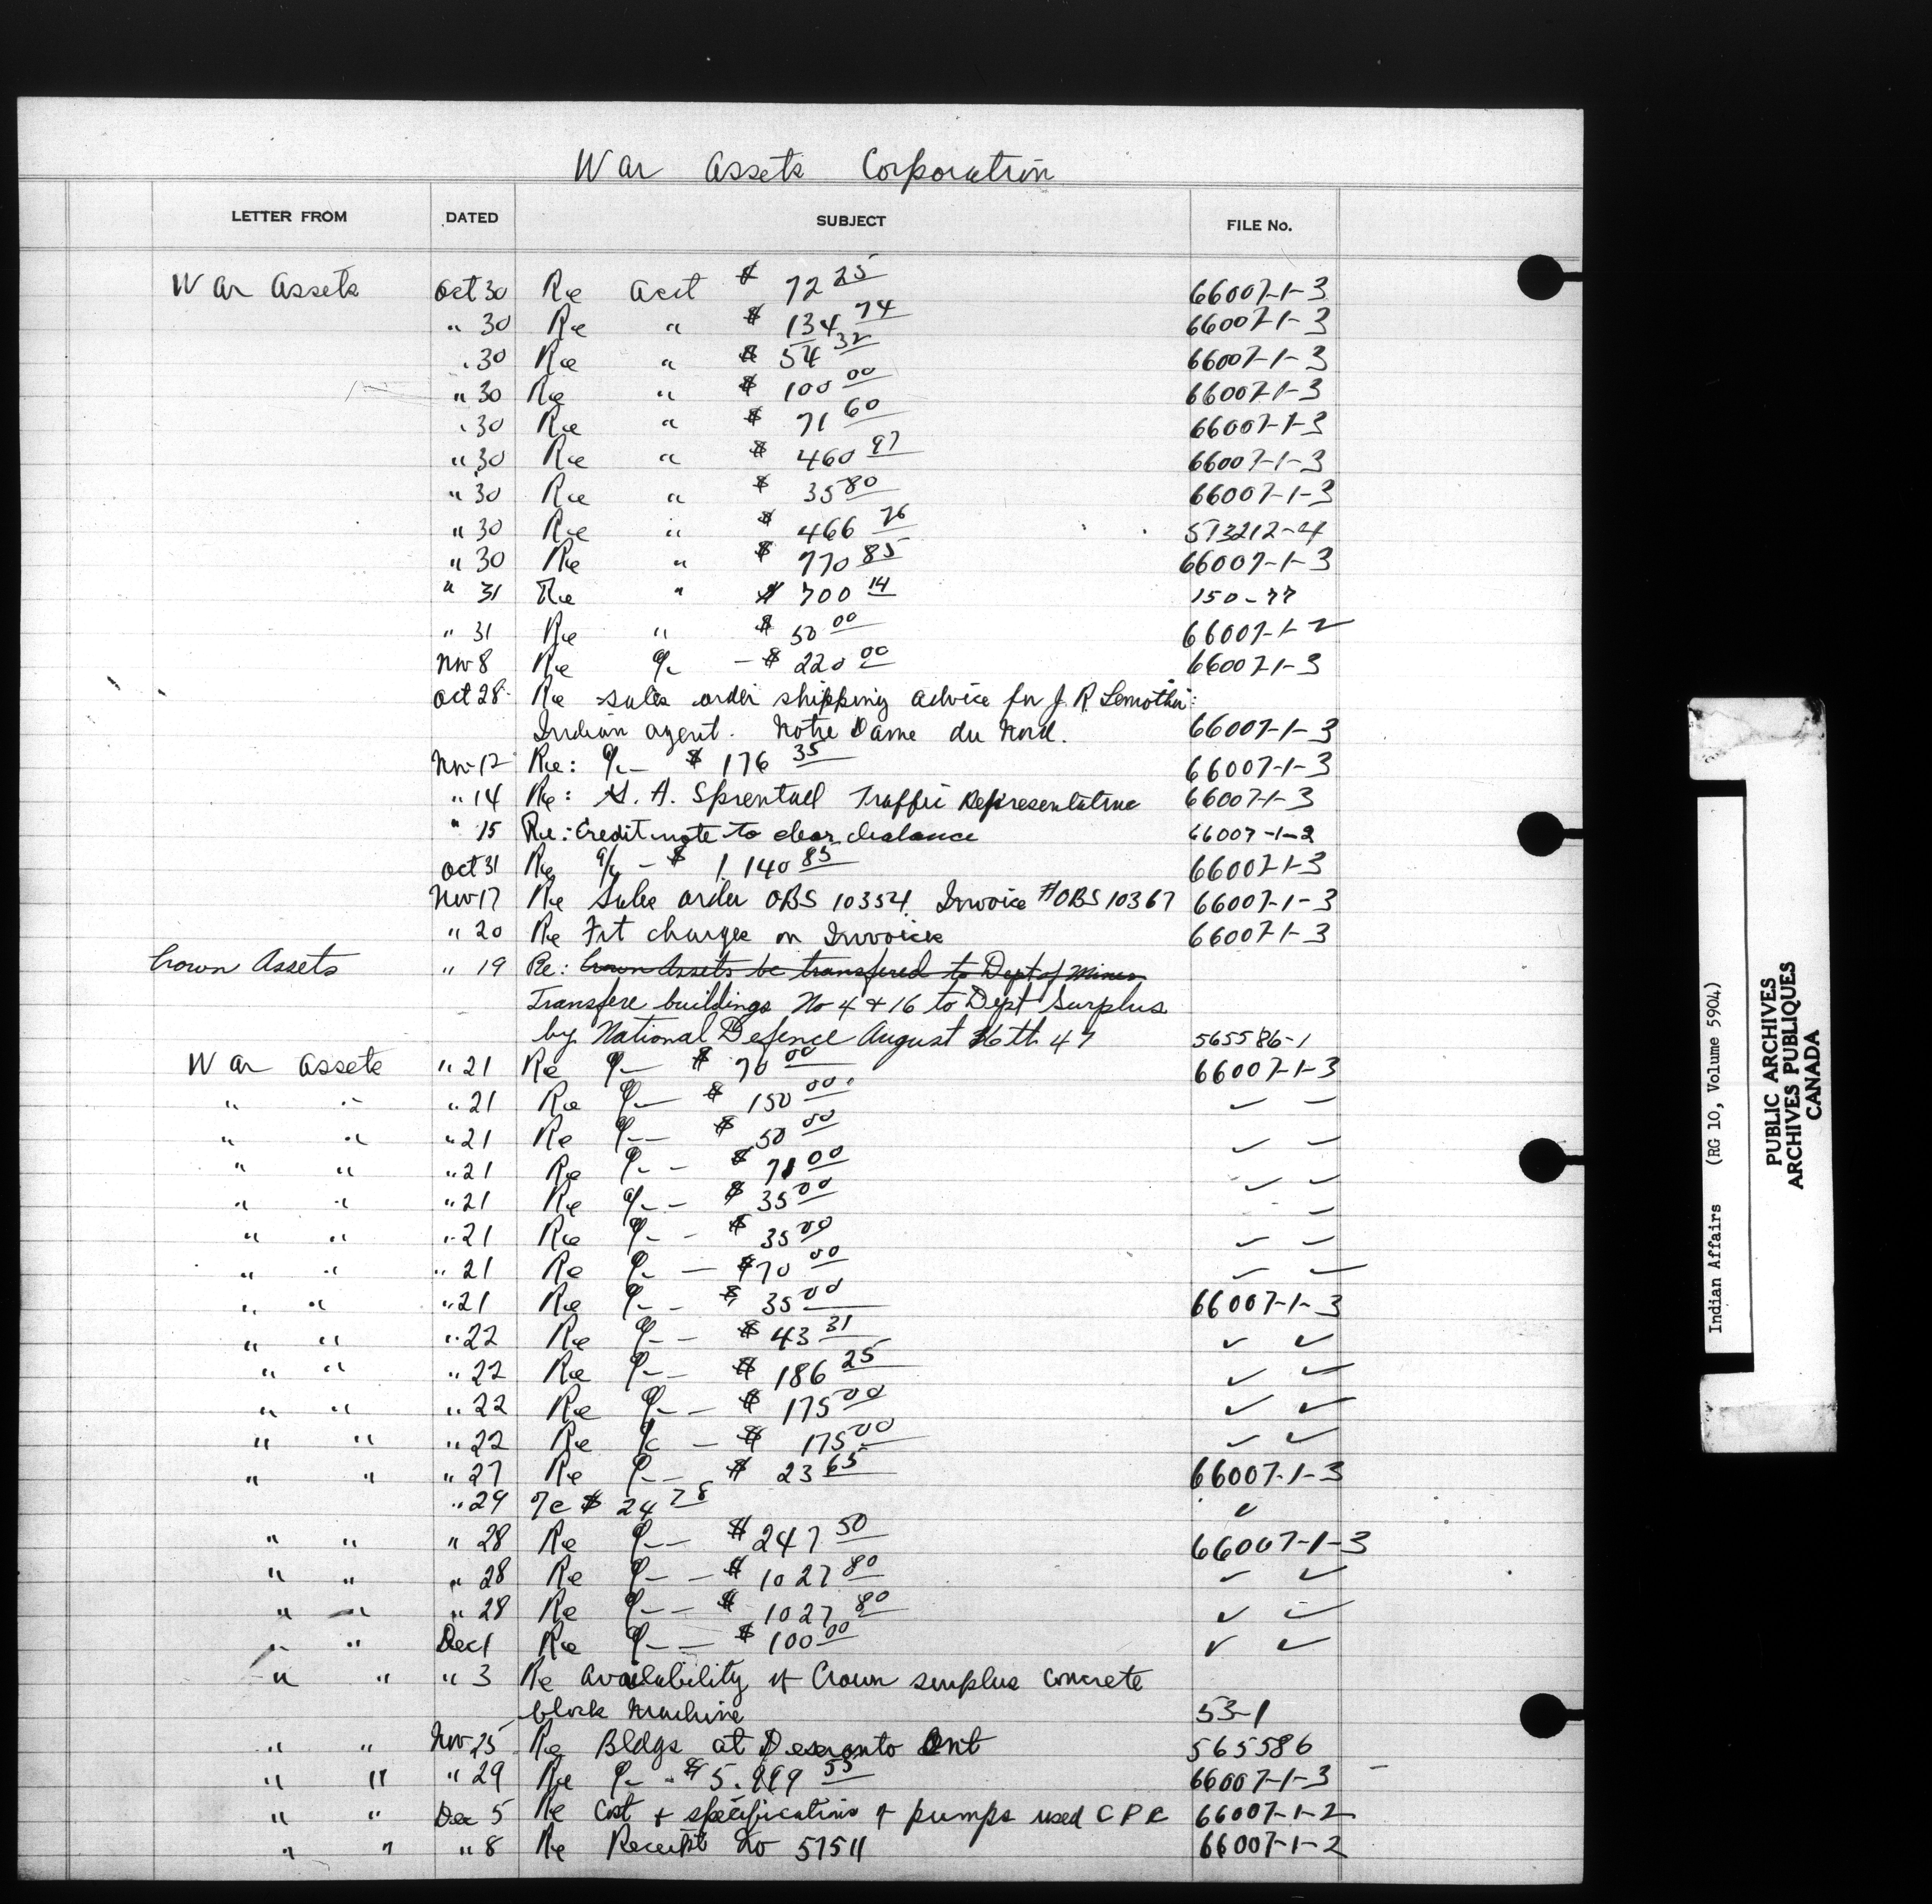 War Assets Corporation
LETTER FROM DATED SUBJECT FILE No.
War Assets Oct 30 Re Acct $ 72 25 66007-1-3
" 30 Re " $ 134 74 66007-1-3
" 30 Re " $ 54 32 66007-1-3
" 30 Re " $ 100 00 66007-1-3
" 30 Re " $ 71 60 66007-1-3
" 30 Re " $ 460 97 66007-1-3
" 30 Re " $ 35 80 66007-1-3
" 30 Re " $ 466 76 573212-4
" 30 Re " $ 770 85 66007-1-3
" 31 Re " $ 700 14 150-77
" 31 Re " $ 50 00 66007-1-2
Nov 8 Re a/c - $ 220 00 66007-1-3
Oct 28 Re sales order shipping advice for J. R
Indian agent. Notre Dame du Nord. 66007-1-3
Nov 12 Re: a/c - $ 176 35 66007-1-3
" 14 Re: A. Traffic Representative 66007-1-3
" 15 Re: Credit note to clear balance 66007-1-2
Oct 31 Re a/c - $ 1,140 85 66007-1-3
Nov 17 Re Sales order OBS 10354. Invoice # OBS 10367 66007-1-3
" 20 Re Frt charges on Invoices 66007-1-3
Crown Assets " 19 Re: Crown Assets be transfered to Dept of Mines
Transfere buildings No 4 & 16 to Dept Surplus
by National Defence August 16th 47 565586-1
War Assets " 21 Re a/c - $ 70 00 66007-1-3
" " " 21 Re a/c - $ 150 00 " "
" " " 21 Re a/c - $ 50 00 " "
" " " 21 Re a/c - $ 71 00 " "
" " " 21 Re a/c - $ 35 00 "
" " " 21 Re a/c - $ 35 00 " "
" " " 21 Re a/c - $ 70 00 " "
" " " 21 Re a/c - $ 35 00 66007-1-3
" " " 22 Re a/c - $ 43 31 " "
" " " 22 Re a/c - $ 186 25 " "
" " " 22 Re a/c - $ 175 00 " "
" " " 22 Re a/c - $ 175 00 " "
" " " 27 Re a/c - $ 23 65 66007-1-3
" 29 $ 24 78 "
" " " 28 Re a/c - $ 247 50 66007-1-3
" " " 28 Re a/c - $ 1027 80 " "
" " " 28 Re a/c - $ 1027 80 " "
" " Dec 1 Re a/c - $ 100 00 " "
" " " 3 Re availability of Crown surplus concrete
block machine 53-1
" " Nov 25 Re Bldgs at Deseronto Ont 565586
" " " 29 Re a/c - 66007-1-3
" " Dec 5 Re Cost & specifications of pumps used C P R 66007-1-2
" " " 8 Re Receipt No 57511 66007-1-2
Indian Affairs (RG 10, Volume 5904)
PUBLIC ARCHIVES
ARCHIVES PUBLIQUES
CANADA